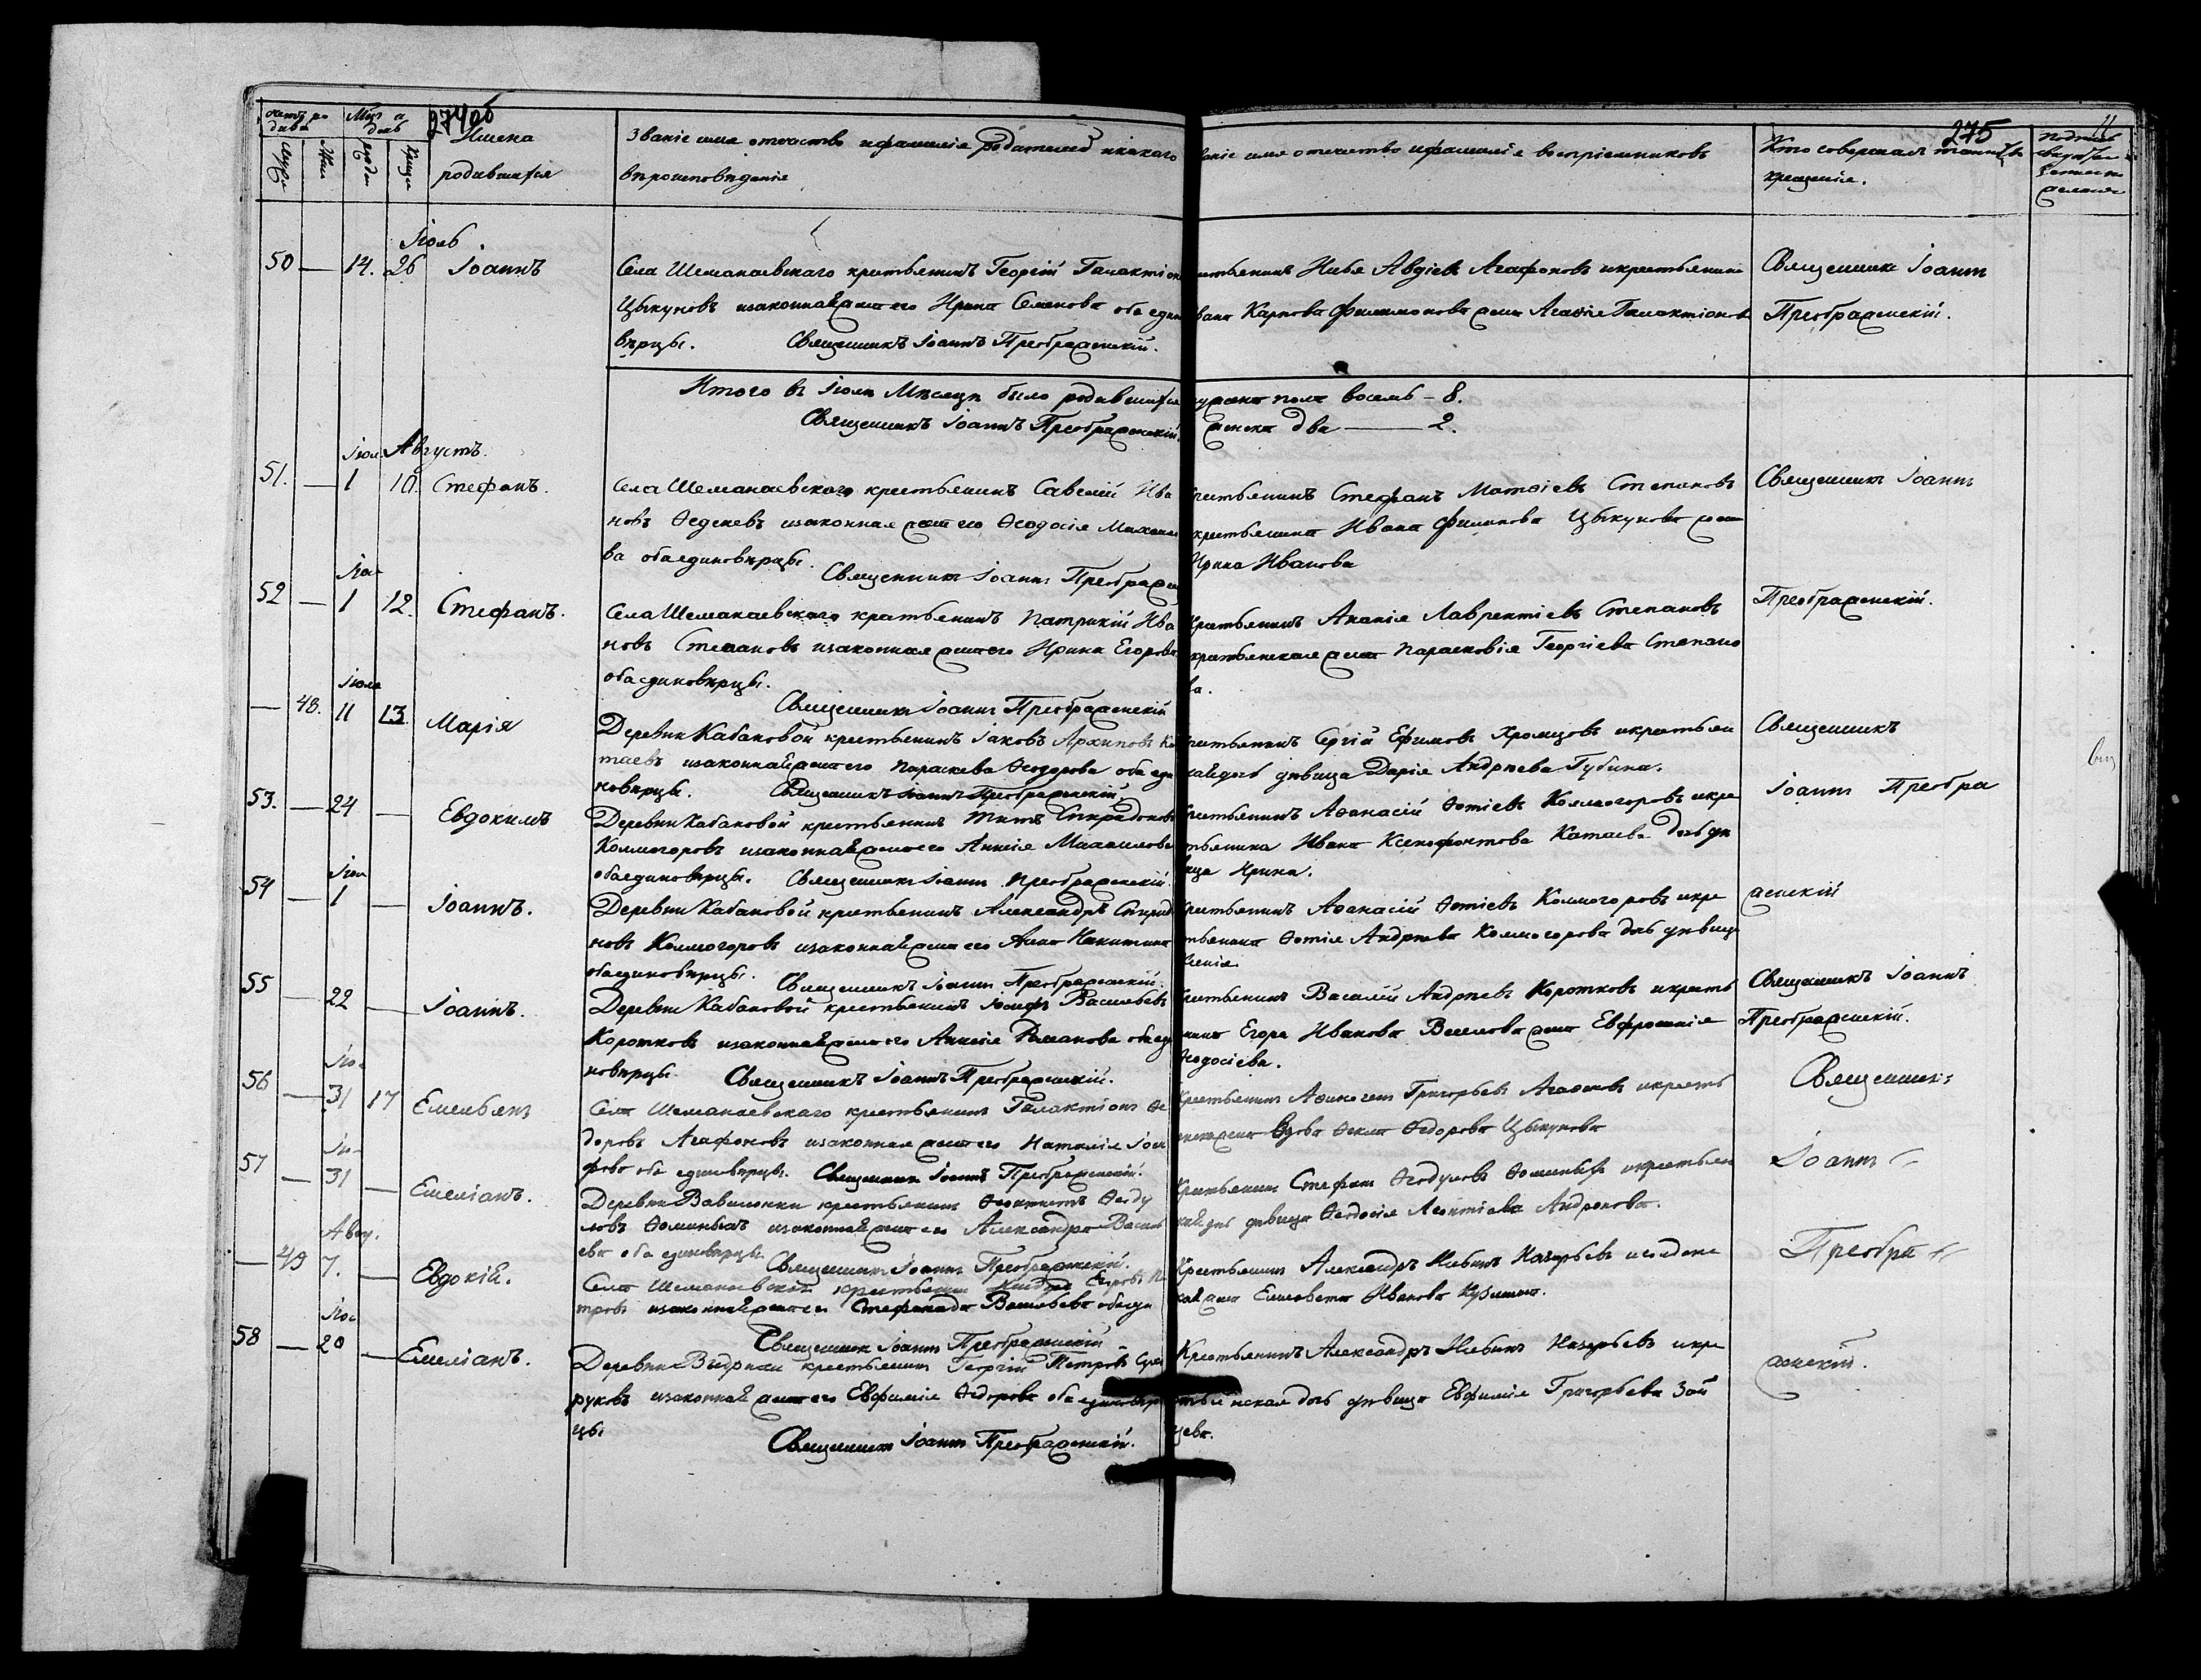 274об
275
11
Имена
родившихся
Званіе имя отчество и фамилія родителей и какого
вѣроисповѣданія
Званіе имя отечество и фамилія воспріемниковъ
Кто совершал таинство
крещенія.
Іюль
50 — 14. 26 Іоаннъ
Села Шеманаевскаго крестьянинъ Георгій Галактіон
Цыкуновъ и законная жена его Ирина Семенова оба едино
вѣрцы. Священникъ Іоаннъ Преображенскій.
крестьянинъ Илья Авдіевъ Агафоновъ и крестьянина
Ивана Карпова Филимонова жена Агафія Галактіонова
Священникъ Іоаннъ
Преображенскій.
Итого въ Іюлѣ Мѣсяцѣ было родившихся
мужска пола восемь — 8.
Священникъ Іоаннъ Преображенскій.
женска два — 2.
Іюл Августъ.
51. — 1 10. Стефанъ.
Села Шеманаевскаго крестьянинъ Савелій Ива
новъ Ѳеденевъ и законная жена его Ѳеодосія Михаило
ва оба единовѣрцы.
Священникъ Іоаннъ Преображен
крестьянинъ Стефанъ Матѳіевъ Степановъ
крестьянина Ивана Филипова Цыкунова жена
Ирина Иванова
Священникъ Іоаннъ
Іюл
52 — 1 12. Стефанъ.
Села Шеманаевскаго крестьянинъ Патрикій Ива
новъ Степановъ и законная жена его Ирина Егорова
оба единовѣрцы.
Священникъ Іоаннъ Преображенскій
Крестьянинъ Ананія Лаврентіевъ Степановъ
крестьянская жена Парасковія Георгіева Степано
ва.
Преображенскій.
Іюля
— 48. 11 13. Марія
Деревни Кабановой крестьянинъ Іаковъ Архиповъ Ка
таевъ и законная жена его Параскева Ѳеодорова оба еди
новѣрцы. Священникъ Іоаннъ Преображенскій.
крестьянинъ Сергій Ефимовъ Хромцовъ и крестьян
ская дочь дѣвица Дарія Андрѣева Губина.
Священникъ
53. — 24 — Евдокимъ
Деревни Кабановой крестьянинъ Титъ Спиридонов
Колмогоровъ и законная жена его Анисія Михаилова
оба единовѣрцы. Священникъ Іоаннъ Преображенскій.
крестьянинъ Аѳанасій Ѳотіевъ Колмогоровъ и кре
стьянина Ивана Ксенофонтова Катаева дочь дѣ
вица Ирина.
Іоаннъ Преобра
Іюл
54 — 1 — Іоаннъ.
Деревни Кабановой крестьянинъ Александръ Спиридо
новъ Колмогоровъ и законная жена его Анна Никитина
оба единовѣрцы. Священникъ Іоаннъ Преображенскій.
крестьянинъ Аѳанасій Ѳотіевъ Колмогоровъ и кре
стьянина Ѳотія Андрѣева Колмогорова дочь дѣвица
женскій
55 — 22 — Іоаннъ.
Деревни Кабановой крестьянинъ Іосифъ Васильевъ
Коротковъ и законная жена его Анисія Романова оба еди
новѣрцы. Священникъ Іоаннъ Преображенскій.
крестьянинъ Василій Андрѣевъ Коротковъ и кресть
янина Егора Иванова жена Евфросинія
Ѳеодосіева.
Священникъ Іоаннъ
Преображенскій.
Іюл
56 — 31 17 Емельянъ
Села Шеманаевскаго крестьянинъ Галактіонъ Ѳе
доровъ Агафоновъ и законная жена его Наталія Іоси
фова оба единовѣрцы. Священникъ Іоаннъ Преображенскій.
Крестьянинъ Аѳиногенъ Григорьевъ Агафоновъ и кресть
янская вдова Ѳекла Ѳедорова Цыкунова
Священникъ
Іюл
57 — 31 — Емеліанъ.
Деревни Вавилонки крестьянинъ Ѳеоктистъ Ѳеоду
ловъ Ѳоминыхъ и законная жена его Александра Василь
ева оба единовѣрцы. Священникъ Іоаннъ Преображенскій.
Крестьянинъ Стефанъ Ѳеодуловъ Ѳоминыхъ и крестьян
ская дочь дѣвица Ѳеодосія Леонтіева Андронова.
Іоаннъ
Авгу.
— 49 7. — Евдокія.
Села Шеманаевскаго крестьянинъ Пе
тровъ и законная жена его Стефанида Васильева оба еди
Священникъ Іоаннъ Преображенскій
Крестьянинъ Александръ Ильинъ Назарьевъ и
жена Елисавета Иванова
Преобра
Іюл
58 — 20 — Емеліанъ.
Деревни Выдрихи крестьянинъ Георгій Петровъ Сухо
руковъ и законная жена его Евфимія Ѳедорова оба единовѣр
цы
Священникъ Іоаннъ Преображенскій.
Крестьянинъ Александръ Ильинъ Назарьевъ и кре
стьянская дочь дѣвица Евфимія Григорьева Зай
цева.
женскій.